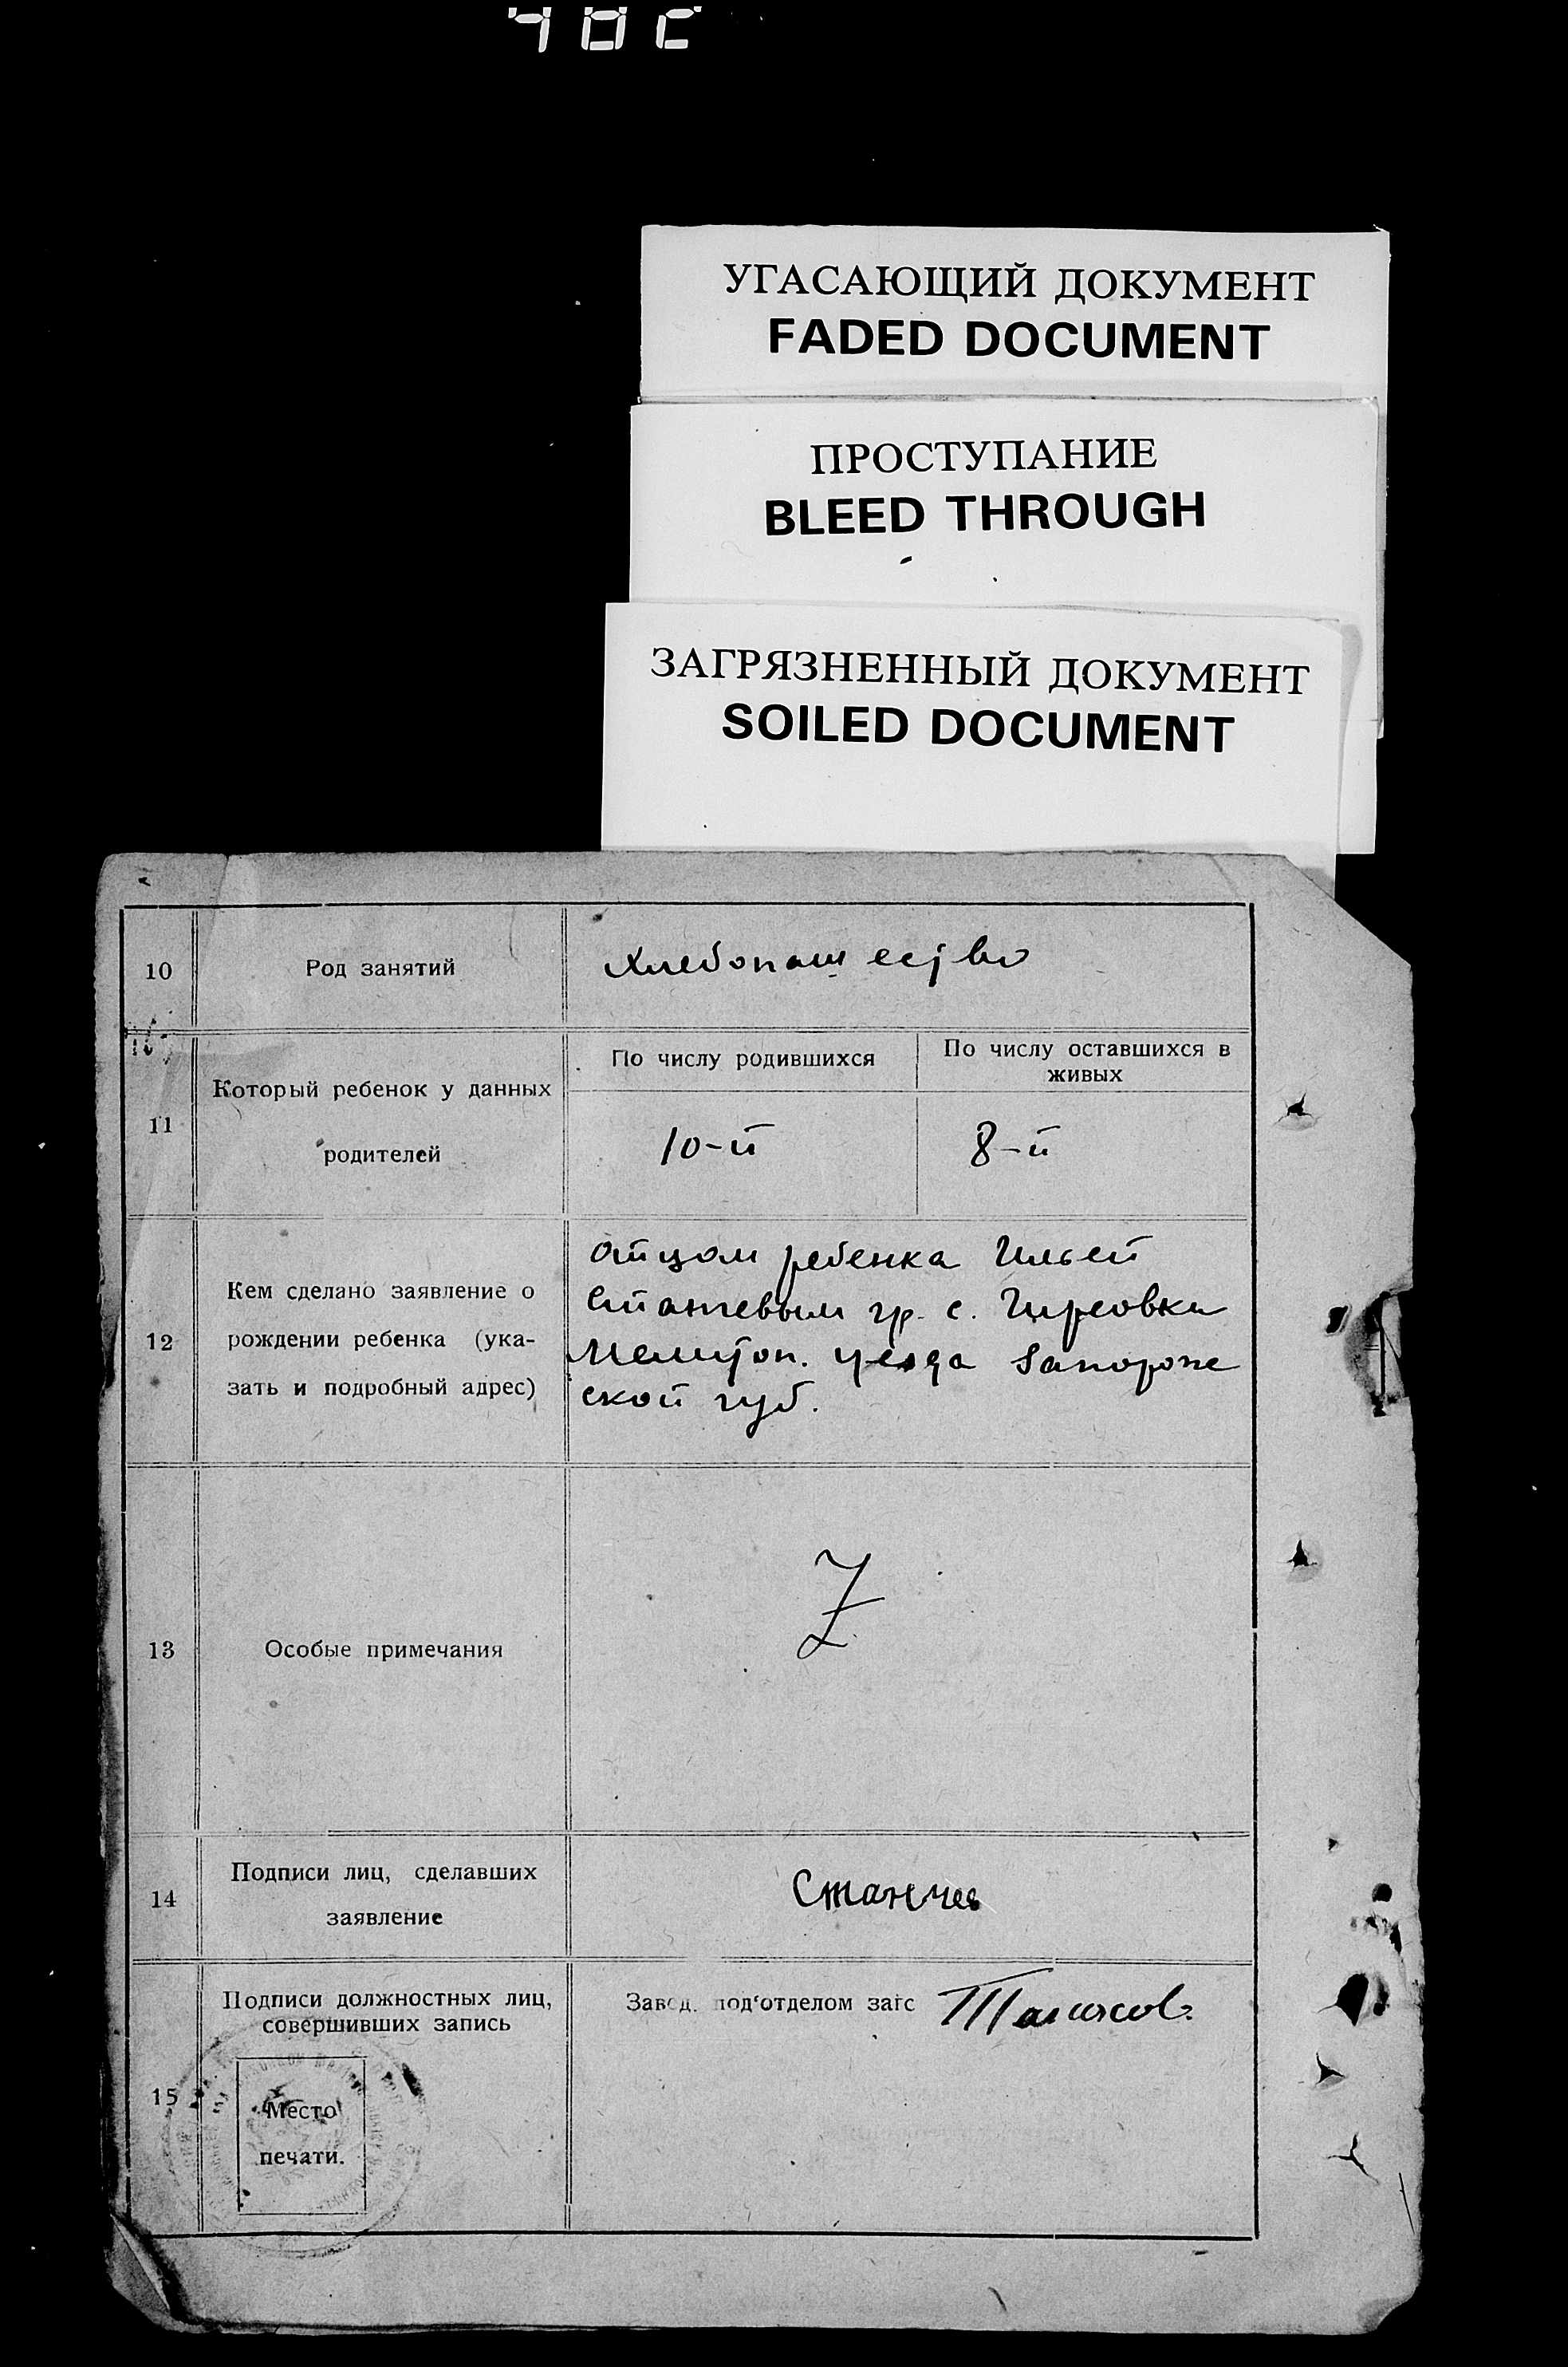 УГАСАЮЩИЙ ДОКУМЕНТ
FADED DOCUMENT
ПРОСТУПАНИЕ
BLEED THROUGH
ЗАГРЯЗНЕННЫЙ ДОКУМЕНТ
SOILED DOCUMENT
10 Род занятий Хлебопашество
11 Который ребенок у данных родителей
По числу родившихся
По числу оставшихся в живых
10-й 8-й
12 Кем сделано заявление о
рождении ребенка (ука-
зать и подробный адрес)
Отцом ребенка Ильей
Станчевым гр. с. Гирсовки
Мелитоп. уезда Запорож
ской губ.
13 Особые примечания Z
14 Подписи лиц, сделавших
заявление
Станчев
15 Подписи должностных лиц,
совершивших запись
Завед. под'отделом загс
Место
печати.